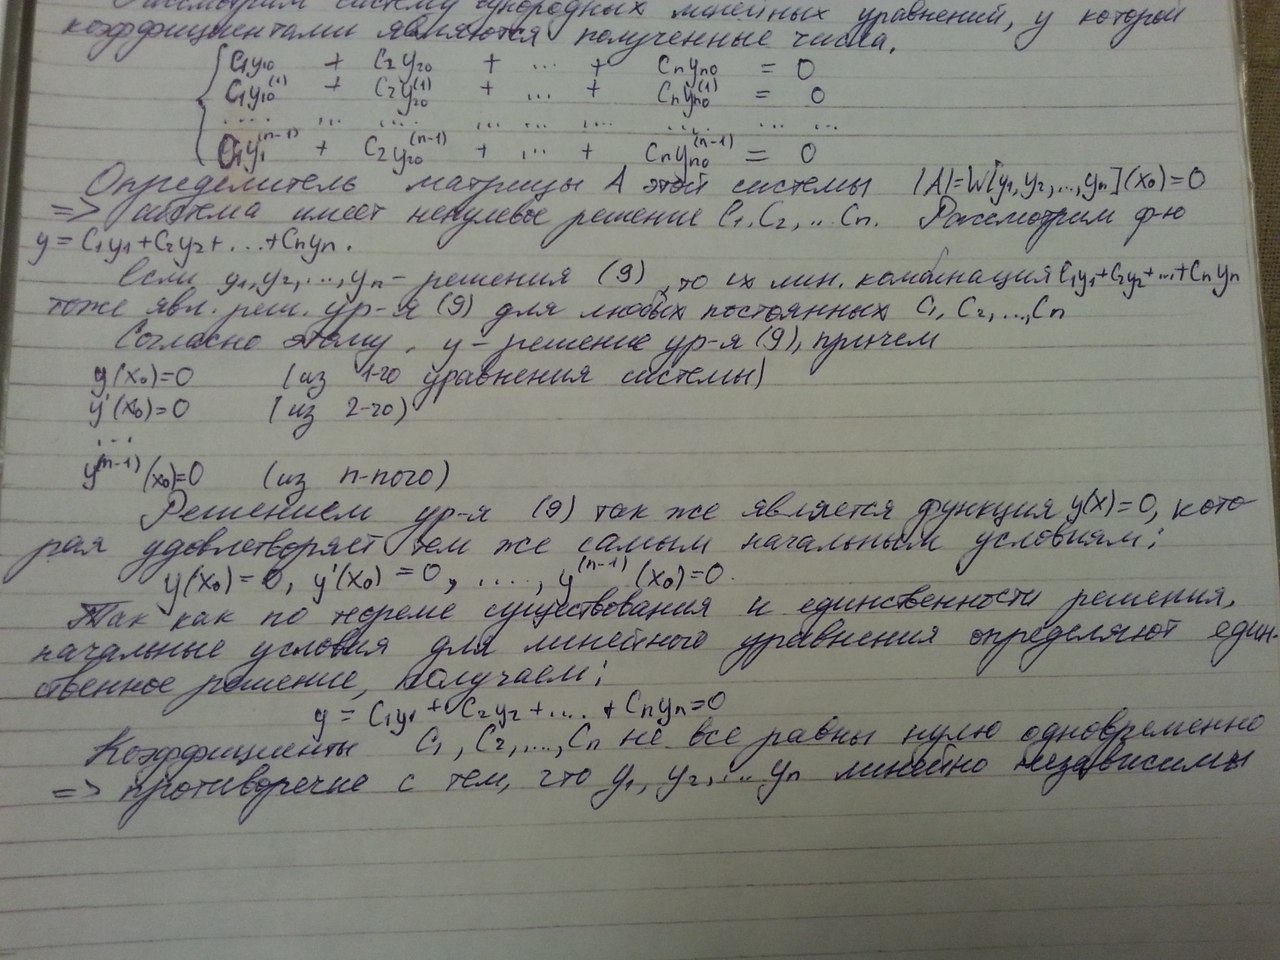 Рассмотрим систему однородных линейных уравнений, у которой
коэффициентами являются полученные числа.
C₁y₁₀ + C₂y₂₀ + ... + Cₙyₙ₀ = 0
C₁y₁₀⁽¹⁾ + C₂y₂₀⁽¹⁾ + ... + Cₙyₙ₀⁽¹⁾ = 0
.... ... .... .... ... .... ..... ... ...
C₁y₁⁽ⁿ⁻¹⁾ + C₂y₂₀⁽ⁿ⁻¹⁾ + ... + Cₙyₙ₀⁽ⁿ⁻¹⁾ = 0
Определитель матрицы A этой системы |A|=W[y₁,y₂,...,yₙ](x₀)=0
=> система имеет ненулевое решение C₁,C₂,..Cₙ. Рассмотрим ф-ю
y=C₁y₁+C₂y₂+...+Cₙyₙ.
Если y₁,y₂,...,yₙ - решения (9), то их лин. комбинация C₁y₁+C₂y₂+...+Cₙyₙ
тоже явл. реш. ур-я (9) для любых постоянных C₁,C₂,...,Cₙ
Согласно этому, y - решение ур-я (9), причем
y(x₀)=0 (из 1-го уравнения системы)
y'(x₀)=0 (из 2-го)
...
y⁽ⁿ⁻¹⁾(x₀)=0 (из n-ного)
Решением ур-я (9) так же является функция y(x)=0, кото-
рая удовлетворяет тем же самым начальным условиям:
y(x₀)=0, y'(x₀)=0, ...., y⁽ⁿ⁻¹⁾(x₀)=0.
Так как по теореме существования и единственности решения,
начальные условия для линейного уравнения определяют един-
ственное решение, получаем:
y = C₁y₁ + C₂y₂ +.... + Cₙyₙ=0
Коэффициенты C₁, C₂,...,Cₙ не все равны нулю одновременно
=> противоречие с тем, что y₁, y₂,...yₙ линейно независимы